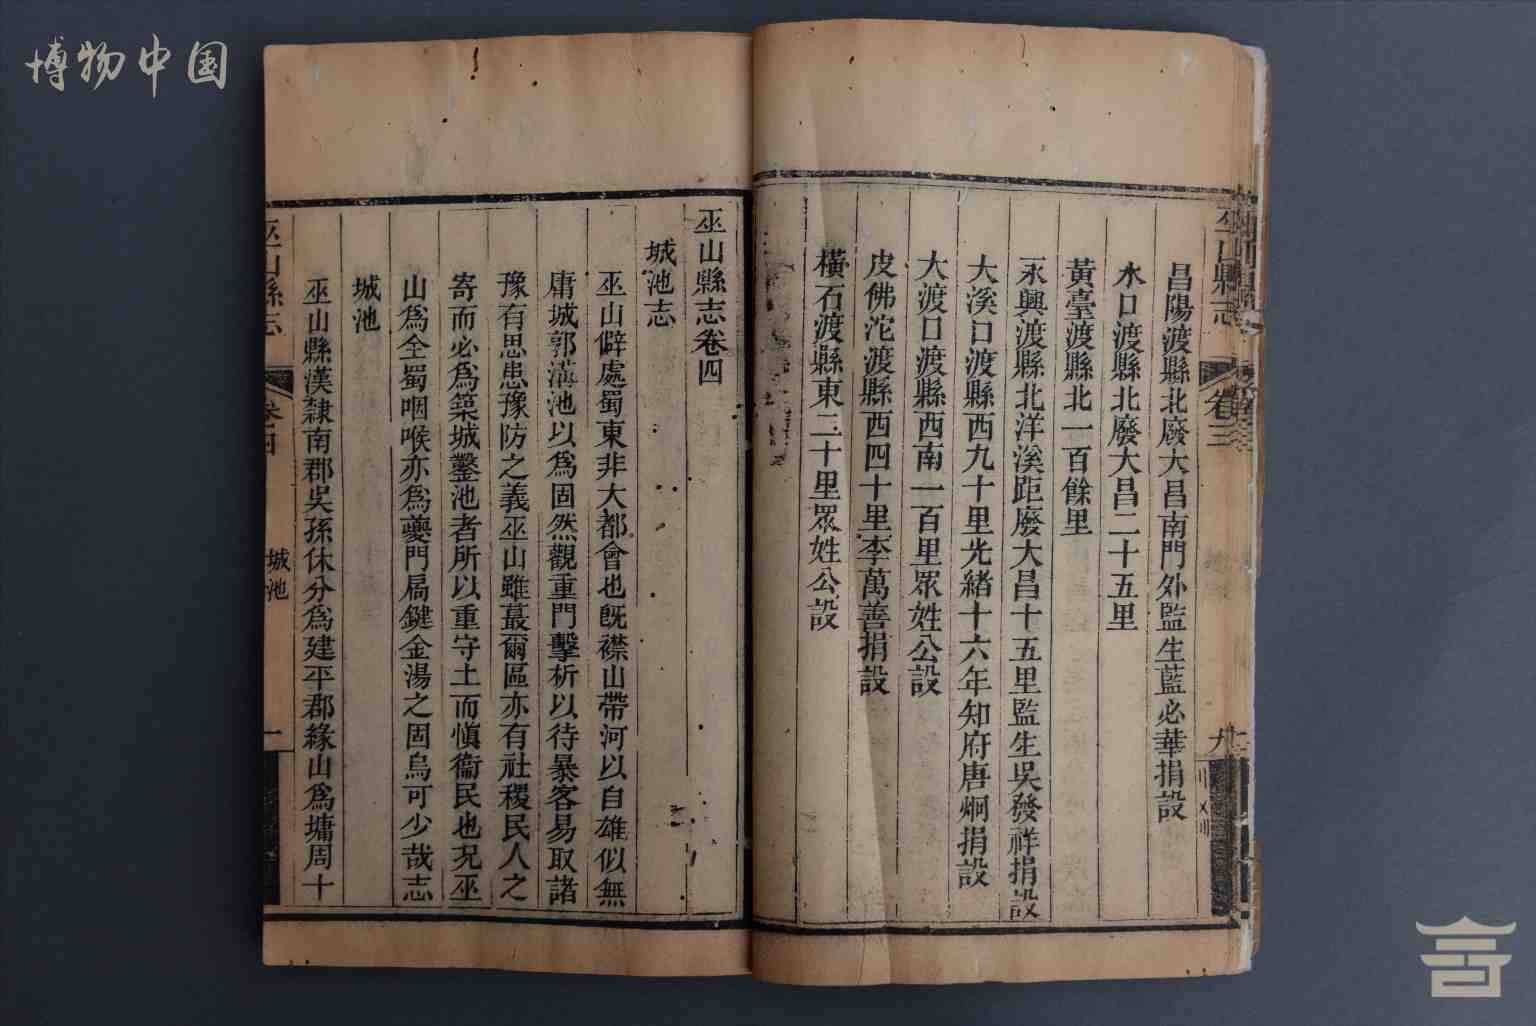 博物中国
巫山縣志
卷三
九
昌陽渡縣北廢大昌南門外監生藍必華捐設
水口渡縣北廢大昌二十五里
黃臺渡縣北一百餘里
永興渡縣北洋溪距廢大昌十五里監生吳發祥捐設
大溪口渡縣西九十里光緒十六年知府唐炯捐設
大渡口渡縣西南一百里眾姓公設
皮佛沱渡縣西四十里李萬善捐設
橫石渡縣東二十里眾姓公設
巫山縣志卷四
城池志
巫山僻處蜀東非大都會也既襟山帶河以自雄似無
庸城郭溝池以為固然觀重門擊柝以待暴客易取諸
豫有思患豫防之義巫山雖蕞爾區亦有社稷民人之
寄而必為築城鑿池者所以重守土而慎衞民也況巫
山為全蜀咽喉亦為夔門扃鍵金湯之固烏可少哉志
城池
巫山縣漢隸南郡吳孫休分為建平郡緣山為墉周十
巫山縣志
卷四
城池
一